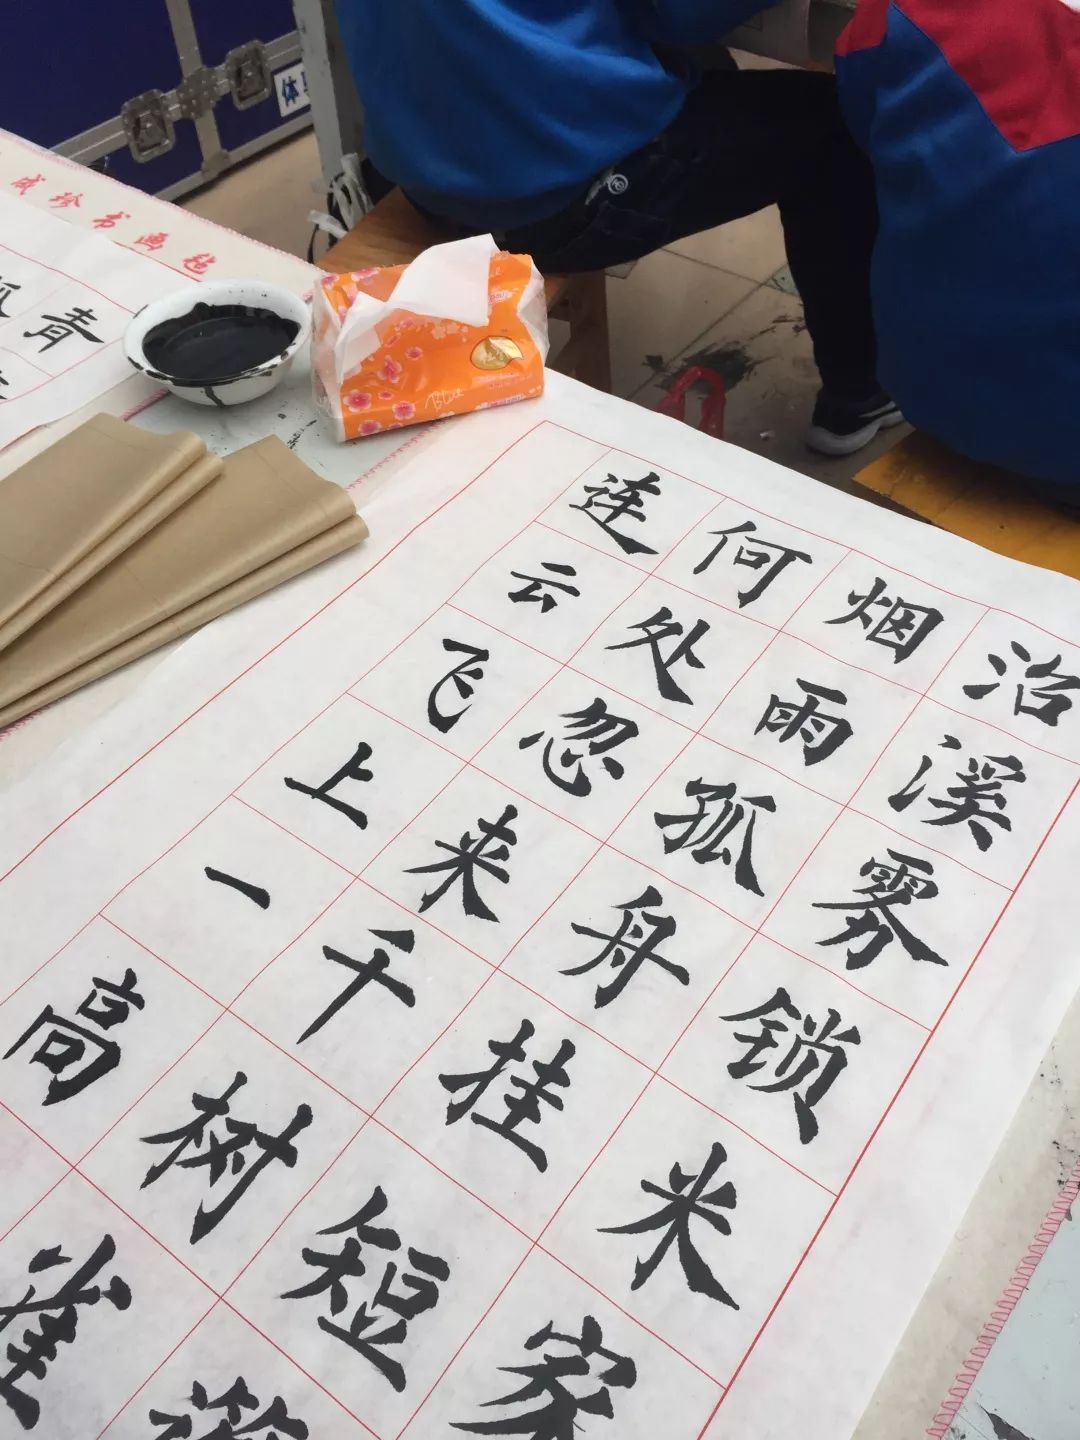 体
珍书画毡
青
沿溪雾锁米家
烟雨孤舟挂短
何处忽来千树雀
连云飞上一高